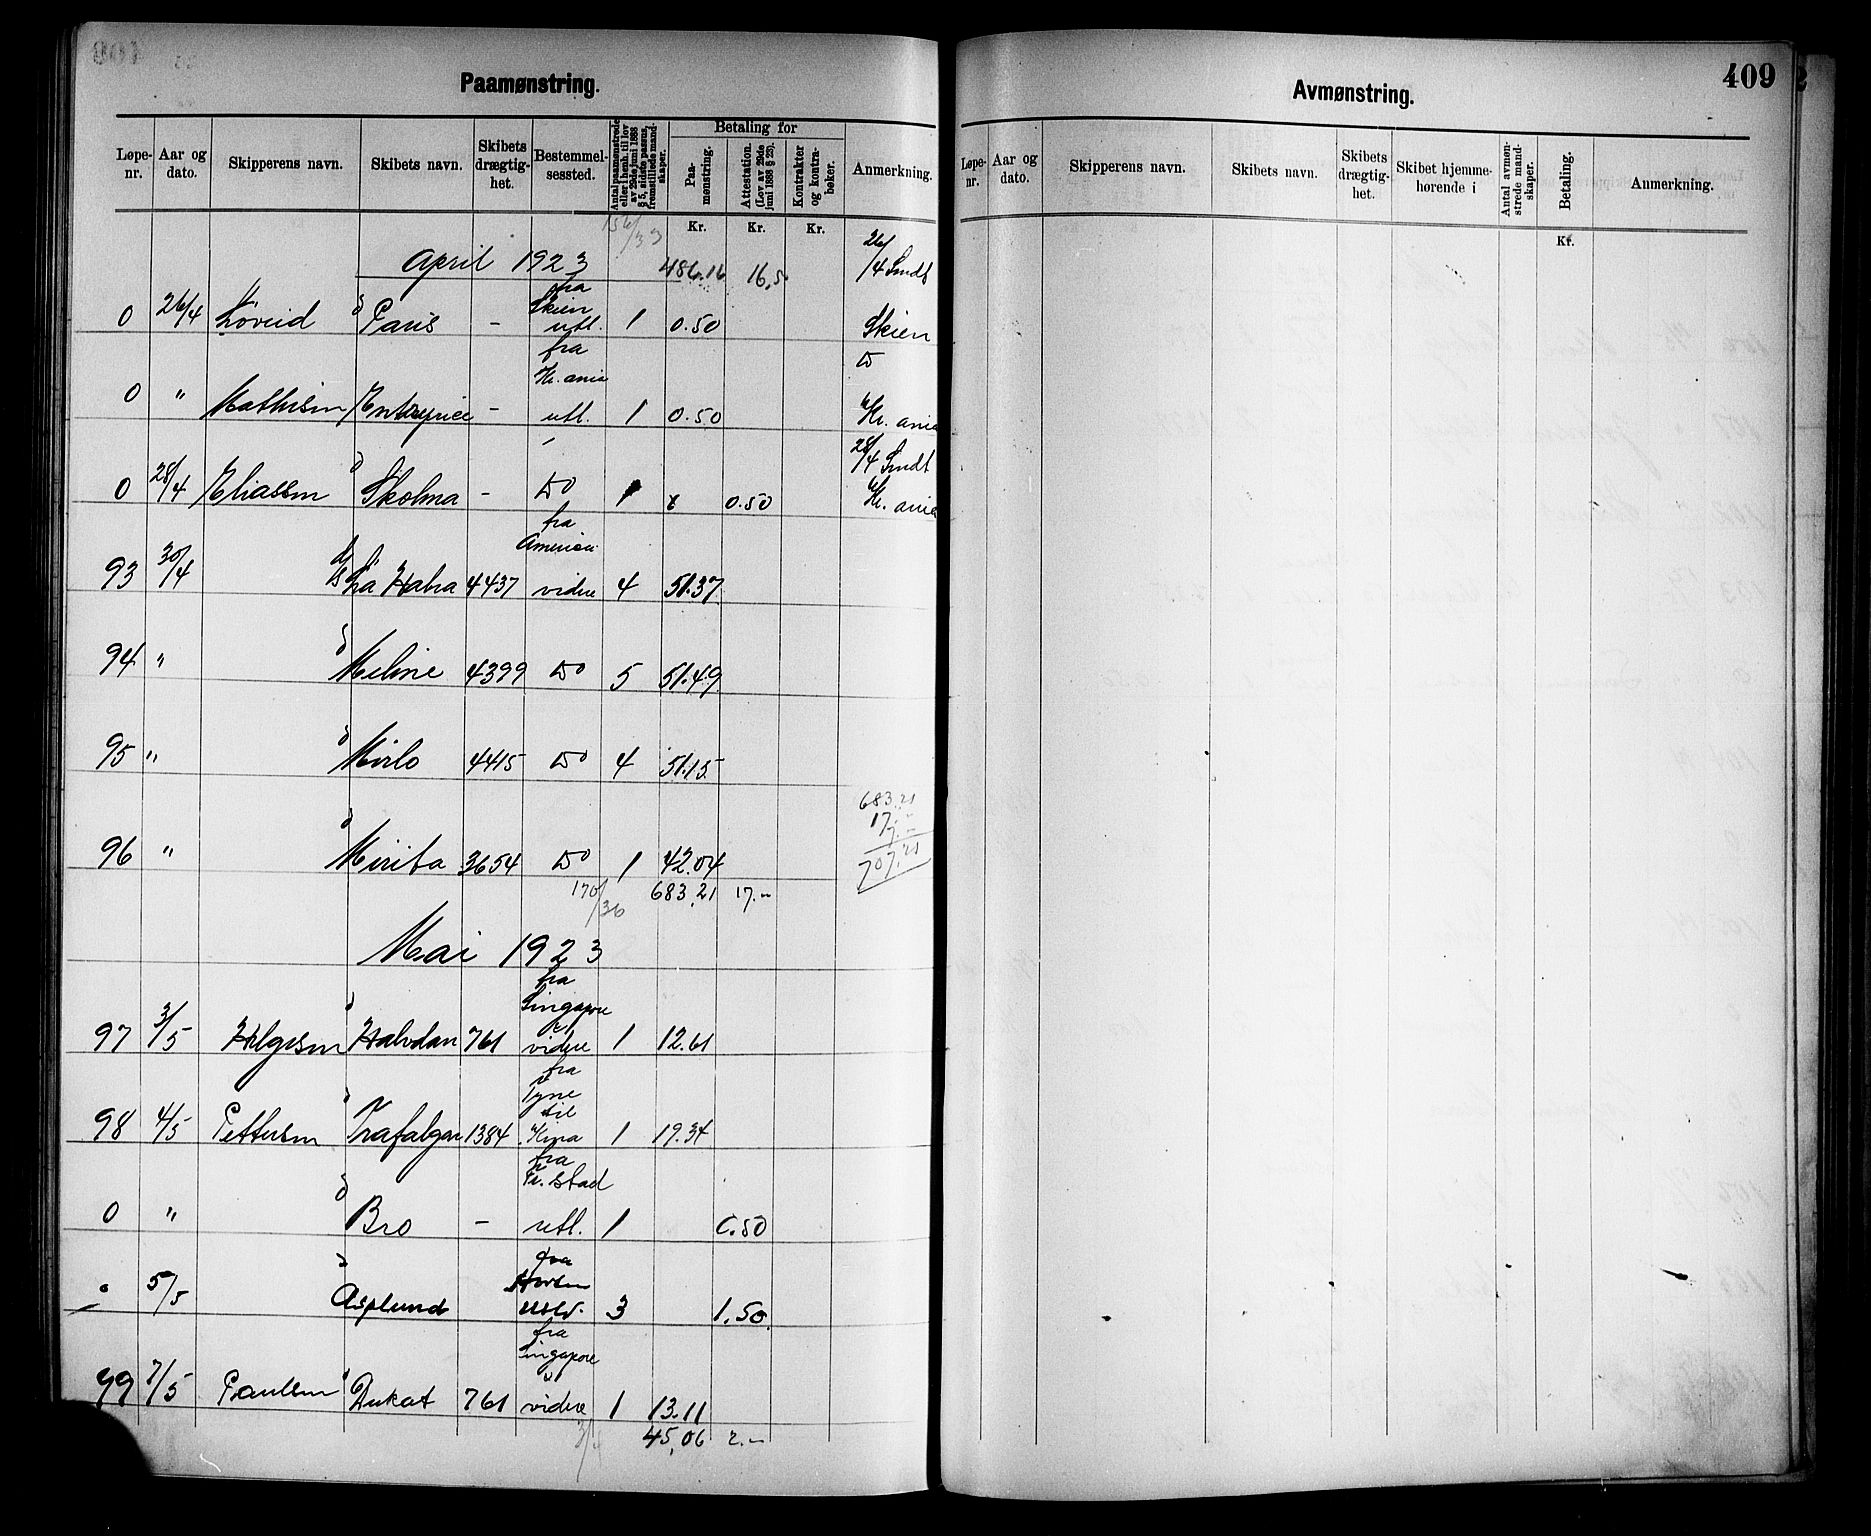 Paamønstring.
Løpe-nr. Aar og dato. Skipperens navn. Skibets navn. Skibets drægtig-het. Bestemmel-sessted. Antal paamønstrede eller i henh. til lov av 29de juni 1888 § 5, sidste passus, fremstillede mand-skaper. Betaling for Paa-mønstring. Attestation. (Lov av 29de juni 1888 § 23). Kontrakter og kontra-bøker. Anmerkning.
Kr. Kr. Kr.
156/33
April 1923 486.16 16,5 26/4 Sendt
0 26/4 Løveid Paris - fra Skien utl. 1 0.50 Skien
0 " Mathisen Enterprice - fra Kr. ania utl. 1 0.50 do Kr. ania
0 28/4 Eliassen Skolma - do 1 x 0.50 28/4 Sendt Kr. ania
93 30/4 d/s La Habra 4437 fra America videre 4 51.37
94 " Meline 4399 do 5 51.49
95 " Mirlo 4415 do 4 51.15
96 " Mirita 3654 do 1 42.04
683.21
17.-
7.-
707,21
170/36 683,21 17.-
Mai 1923
97 3/5 Helgesen Halvdan 761 fra Singapore videre 1 12.61
98 4/5 Pettersen Trafalgar 1384 fra Tyne til Kina 1 19.34
0 " Bro - fra Fr. stad utl. 1 0.50
" 5/5 Asplund fra 3 1.50
99 7/5 Paulsen Dukat 761 fra Singapore videre 1 13.11
45,06 2.-
Avmønstring.
409
Løpe-nr. Aar og dato. Skipperens navn. Skibets navn. Skibets drægtig-het. Skibet hjemme-hørende i Antal avmøn-strede mand-skaper. Betaling. Anmerkning.
Kr.